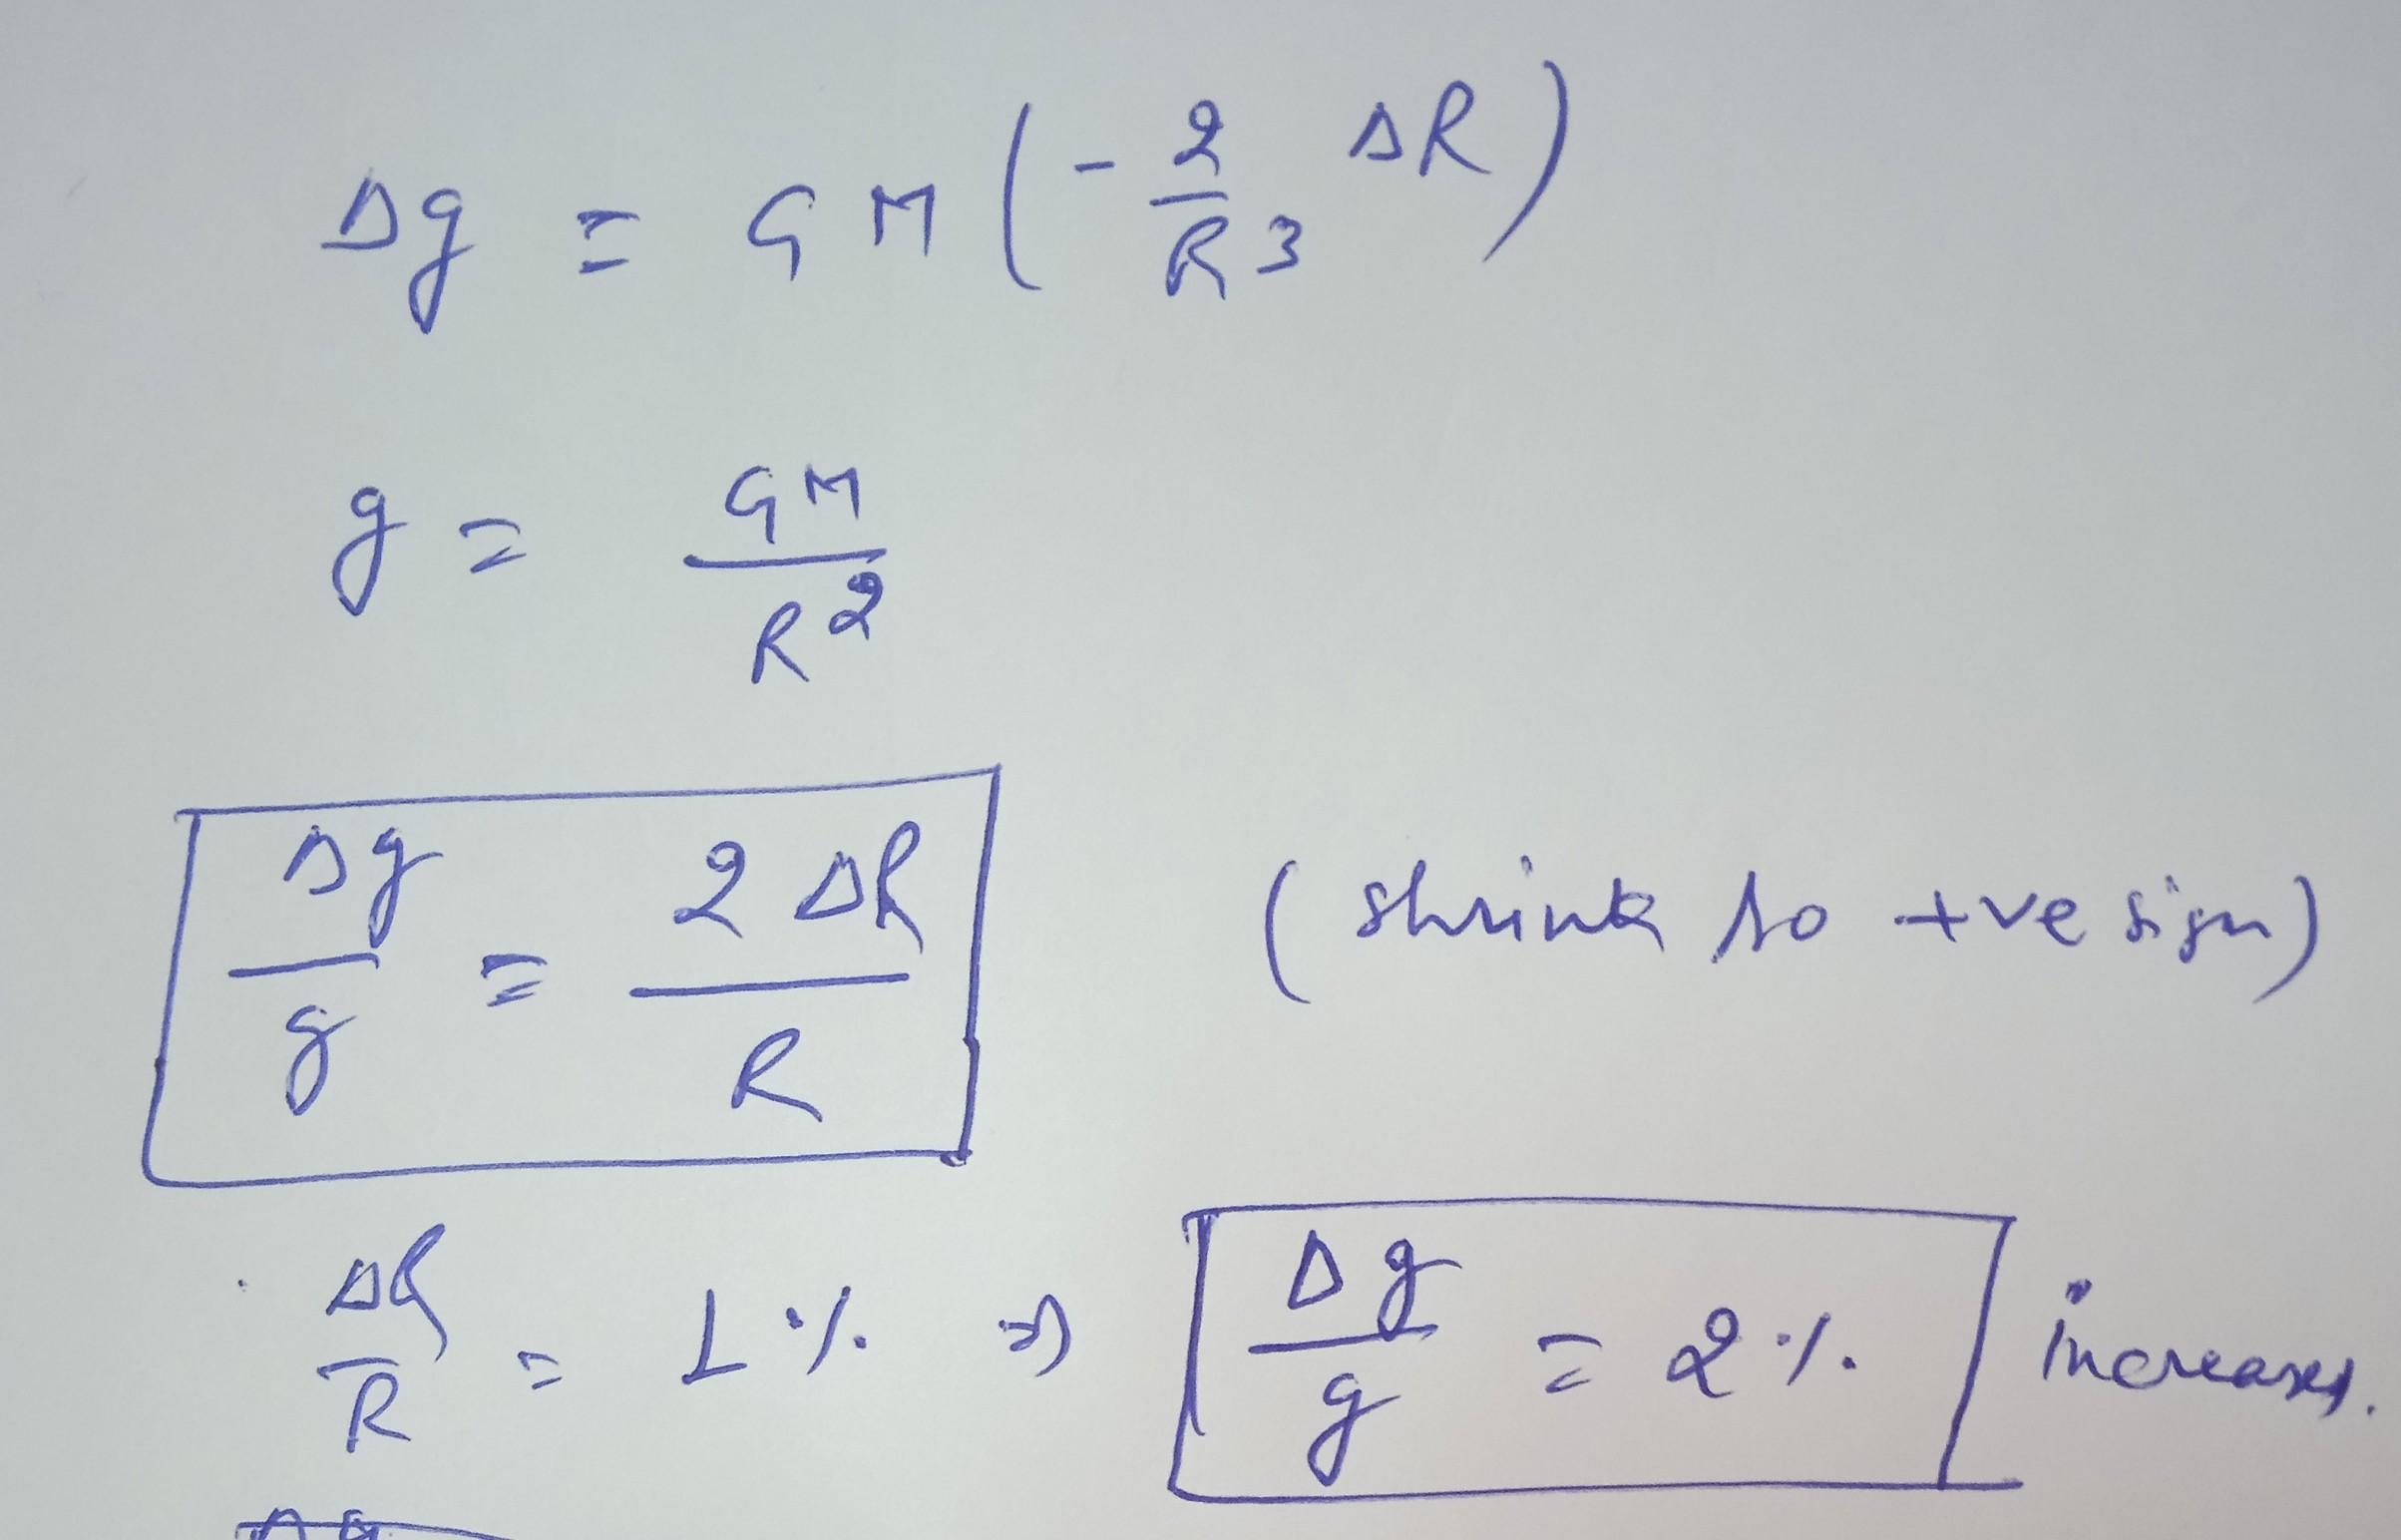 Δg = GM (-2/R3 ΔR)
g = GM/R²
Δg/g = 2ΔR/R (shrink so +ve sign)
ΔR/R = 1% ⇒ Δg/g = 2% increases.